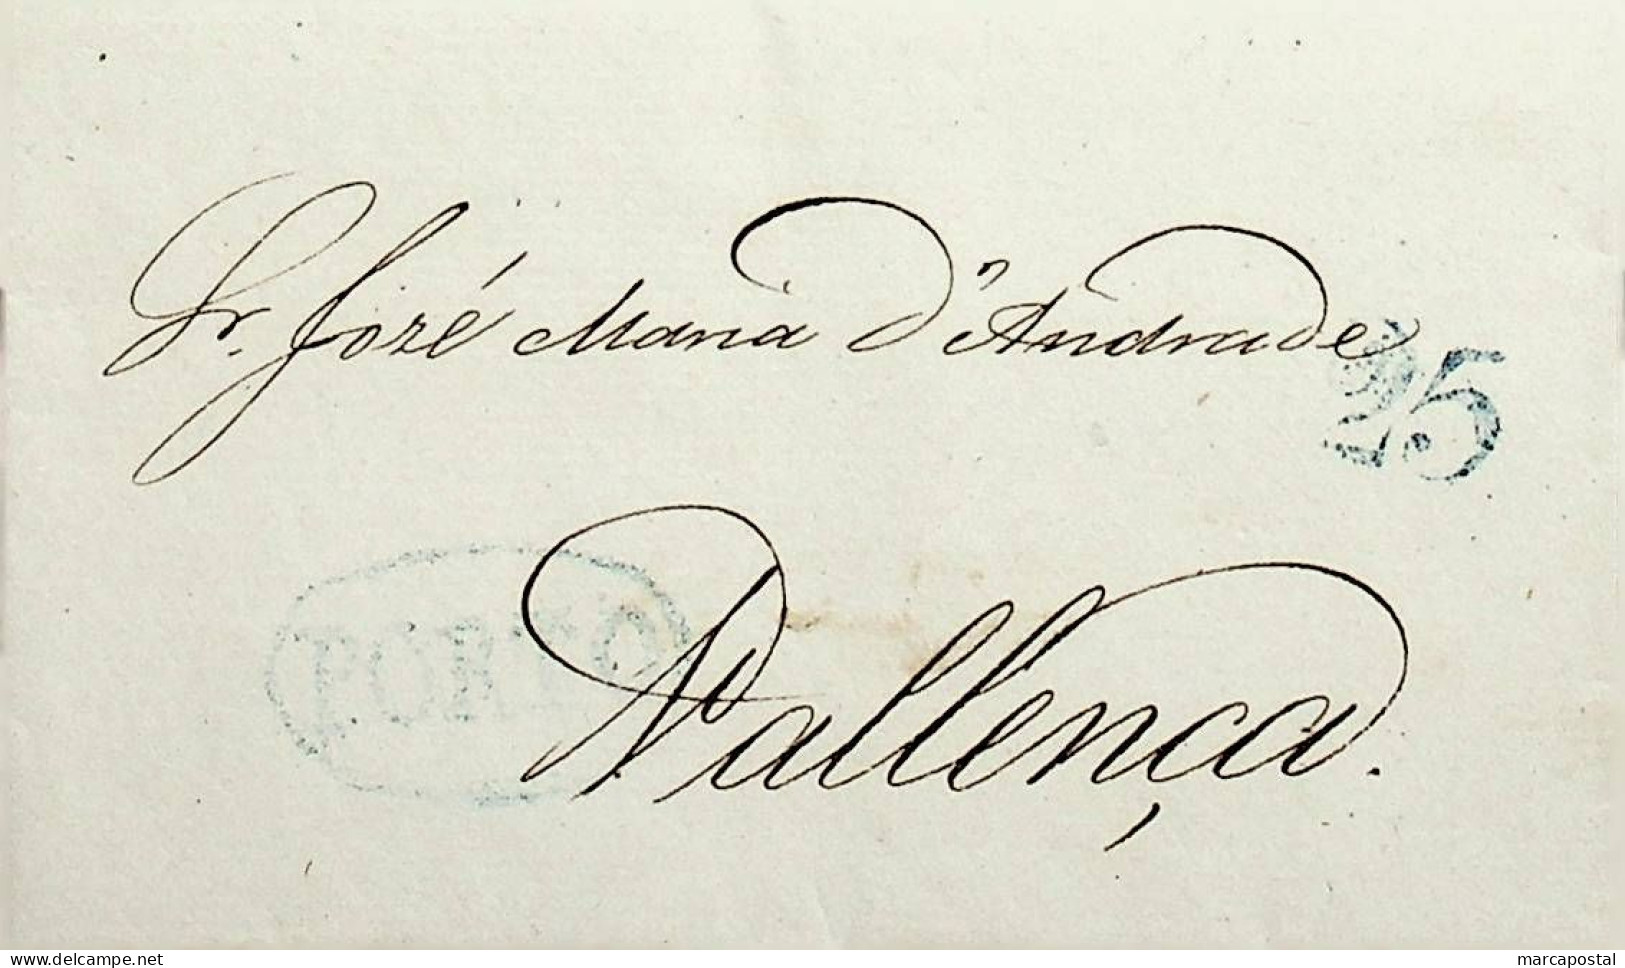 Sr. José Maria d'Andrade
25
PORTO
Vallença.
www.delcampe.net
marcapostal